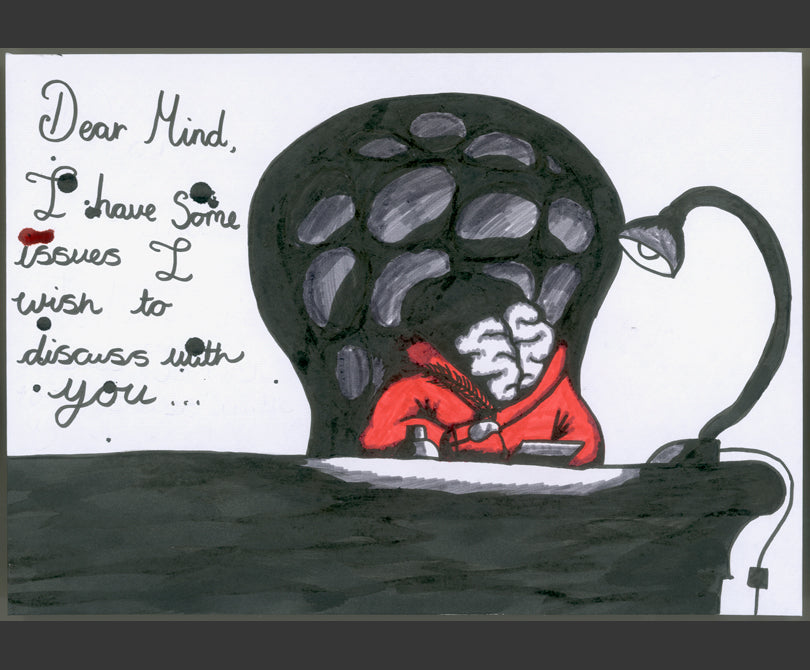 Dear Mind,
I have some
issues I
wish to
discuss with
you...